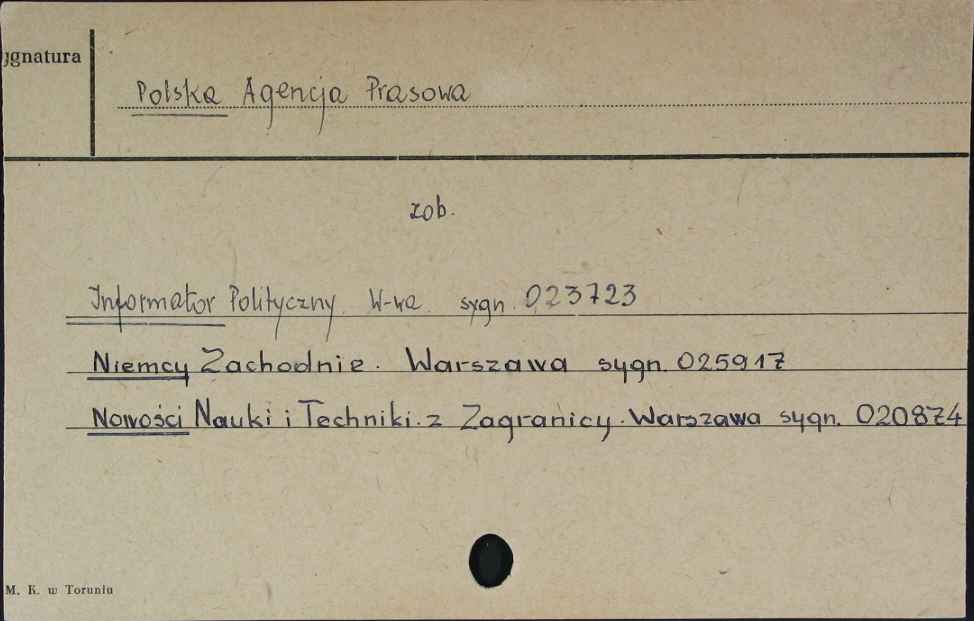 ygnatura
Polska Agencja Prasowa
zob.
Informator Polityczny. W-wa. sygn. 023723
Niemcy Zachodnie. Warszawa sygn. 025917
Nowości Nauki i Techniki. z Zagranicy. Warszawa sygn. 020874
M. K. w Toruniu